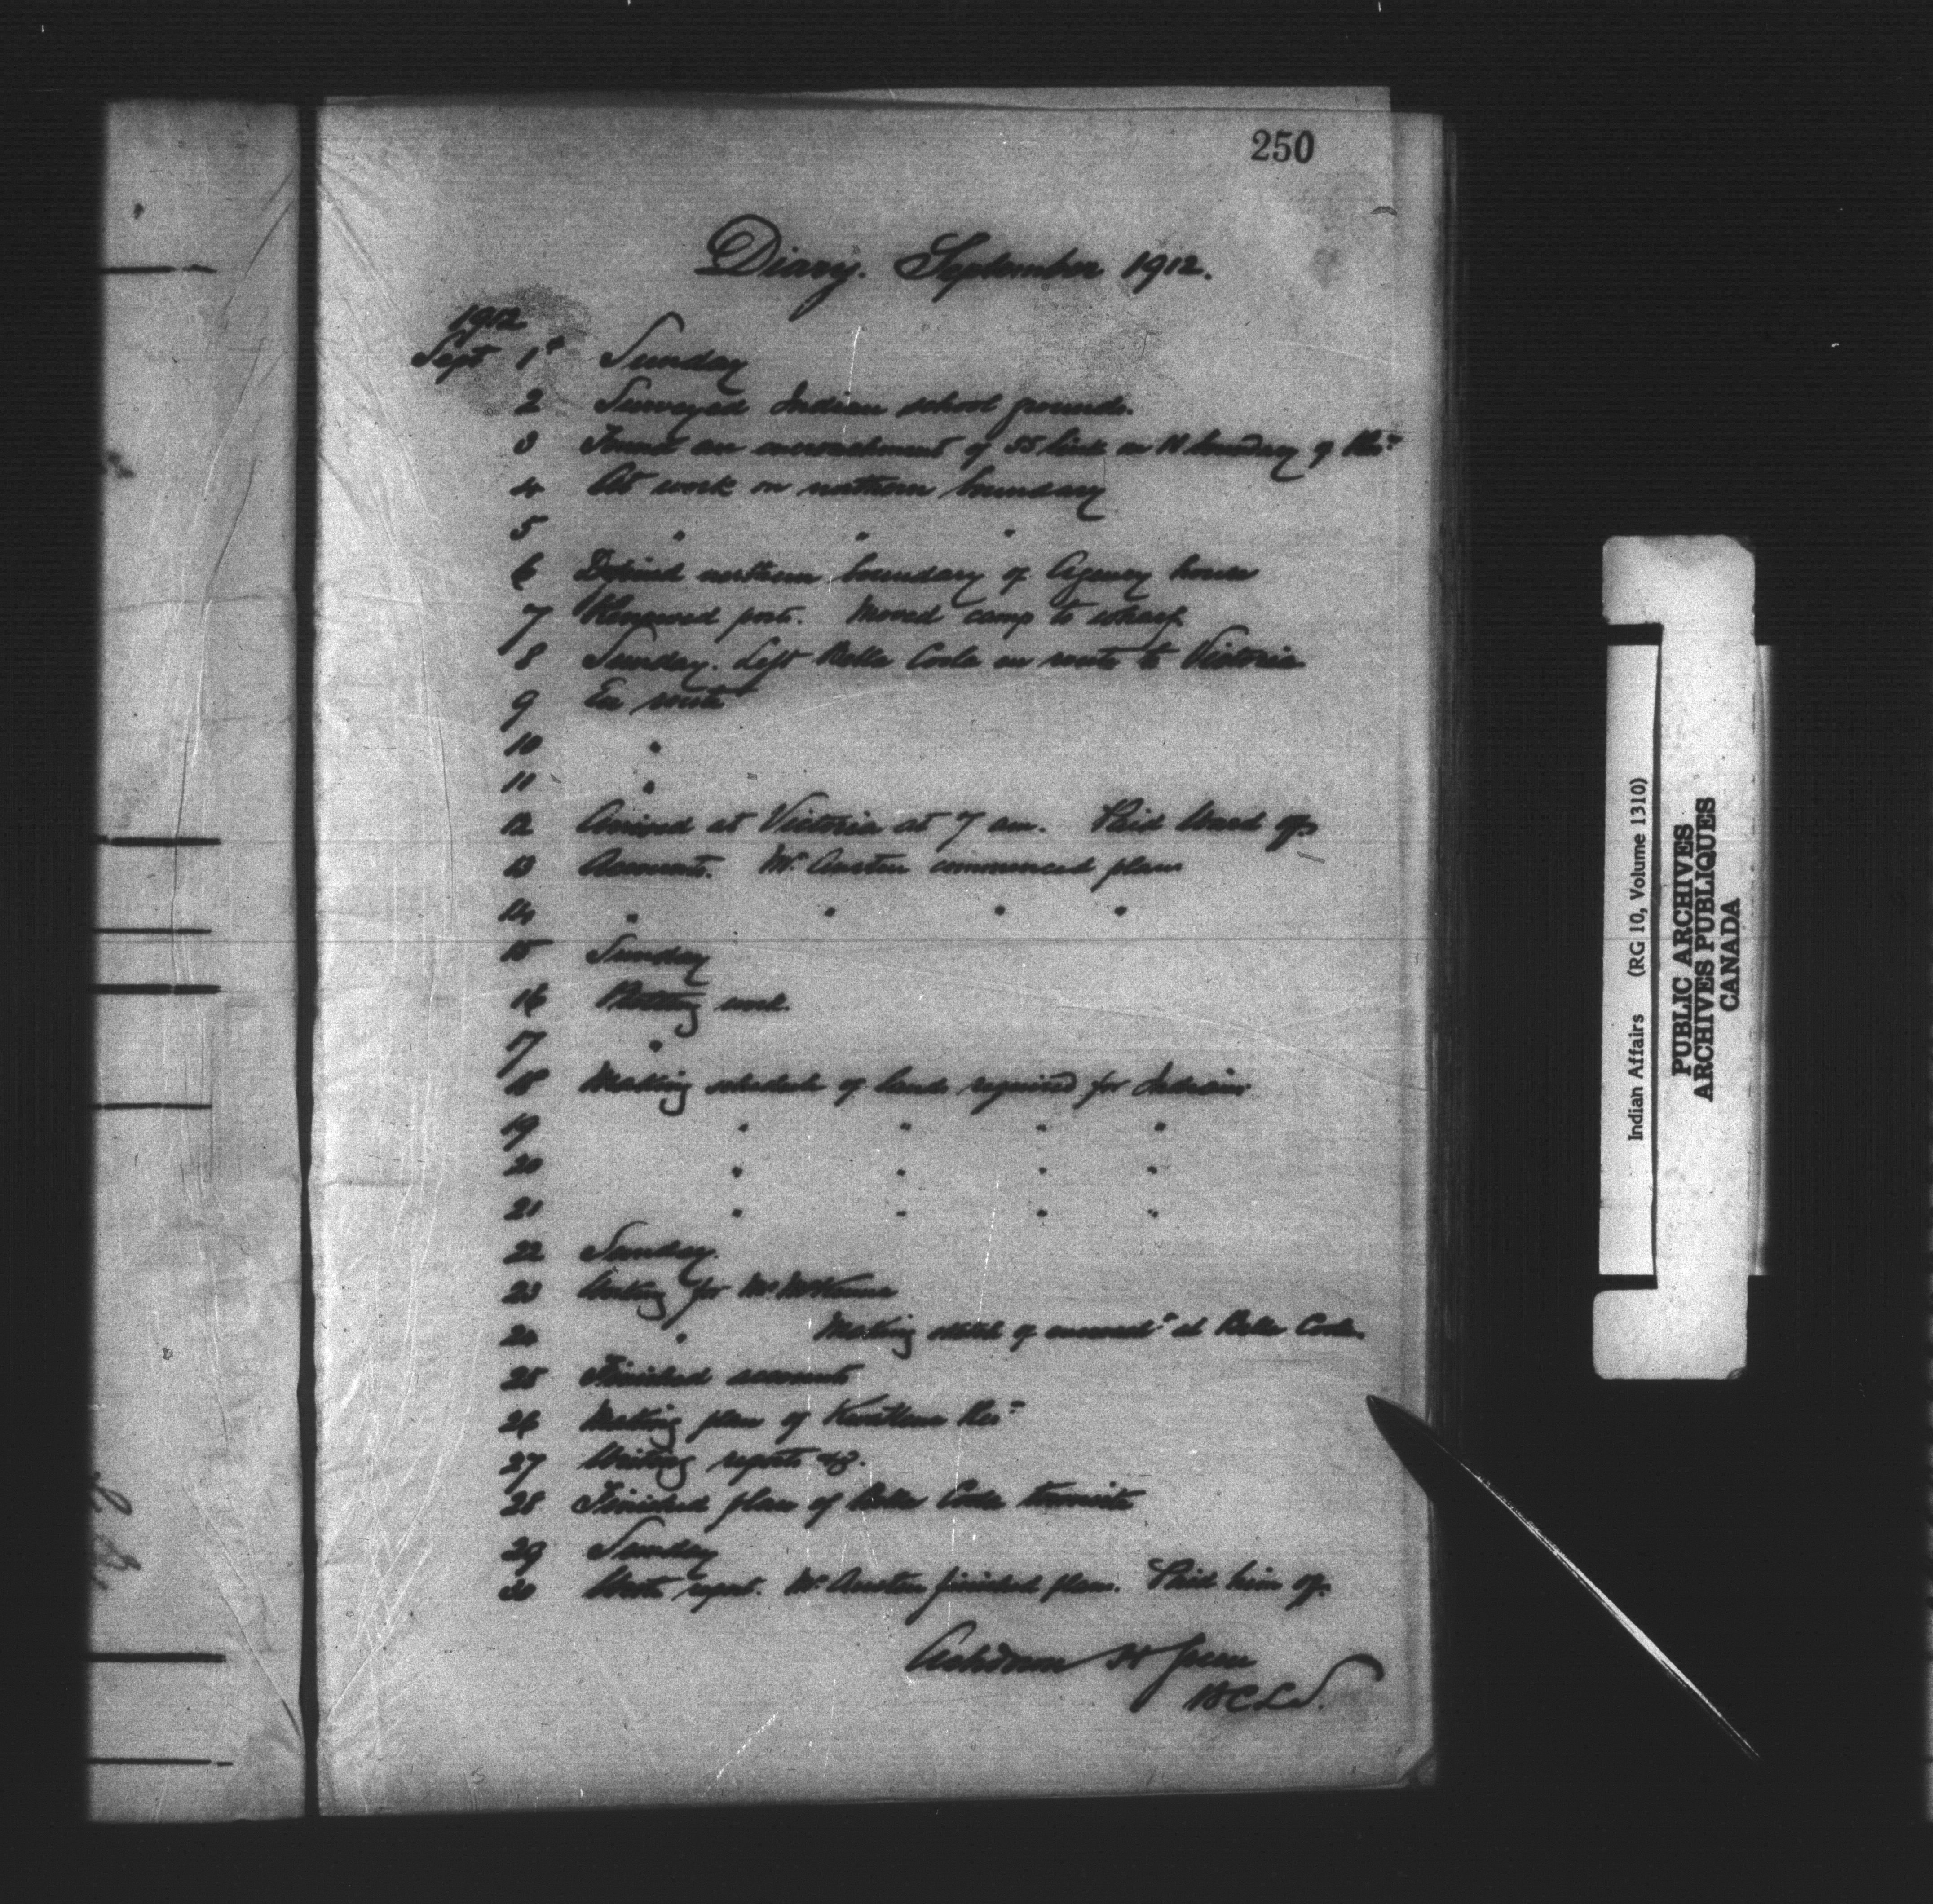 250
Diary. September 1912.
1912
Sept 1st Sunday
2 Surveyed Indian school grounds.
3 Found an encroachment of 55 links on N boundary of Res.
4 At work on northern boundary
5 " " "
6 Defined northern boundary of Agency house
7 Renewed posts. Moved camp to wharf
8 Sunday. Left Bella Coola en route to Victoria
9 En route
10 "
11 "
12 Arrived at Victoria at 7 am. Paid Ward off
13 Accounts. Mr Austen commenced plans
14 " " " "
15 Sunday
16 Plotting work.
17 "
18 Making schedule of lands required for Indians
19 " " " "
20 " " " "
21 " " " "
22 Sunday.
23 Working for Mr McKenna
24 " Making sketch of encroacht at Bella Coola
25 Finished accounts
26 Making plan of Res.
27 Writing reports &c.
28 Finished plan of Bella Coola townsite
29 Sunday
30 Wrote report. Mr Austen finished plan. Paid him off.
Ashdown H Green
B C L S.
Indian Affairs (RG 10, Volume 1310)
PUBLIC ARCHIVES
ARCHIVES PUBLIQUES
CANADA